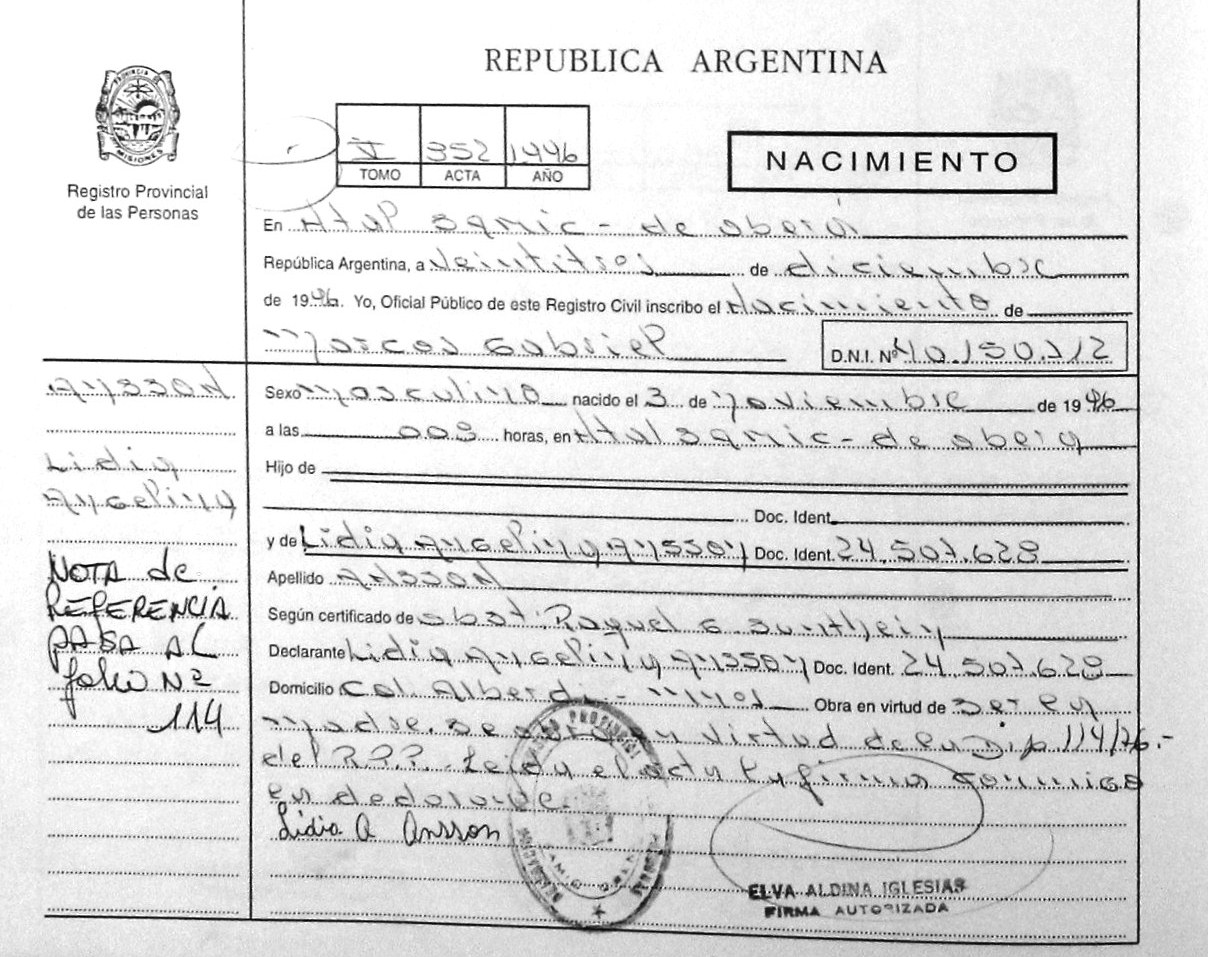 REPUBLICA ARGENTINA
PROVINCIA DE
MISIONES
Registro Provincial
de las Personas
V 352 1996
TOMO ACTA AÑO
NACIMIENTO
En Htal samic - de oberá
República Argentina, a Veintitres de diciembre
de 1996. Yo, Oficial Público de este Registro Civil inscribo el Nacimiento de
Marcos Gabriel
D.N.I. Nº 40.150.712
Sexo Masculino nacido el 3 de Noviembre de 1996
a las 003 horas, en Htal samic - de obera
Hijo de
Doc. Ident.
y de Lidia Angelina Ansson Doc. Ident. 24.507.628
Apellido ANSSON
Según certificado de obst. Raquel G.
Declarante Lidia Angelina Ansson Doc. Ident. 24.507.628
Domicilio Col. Alberdi - Mnes Obra en virtud de ser la
madre. Se en virtud de la Dip 114/76.-
del R.P.P. Leida el acta la firma conmigo
la declarante.
Lidia A Ansson
ELVA ALDINA IGLESIAS
FIRMA AUTORIZADA
ANSSON
Lidia
Angelina
NOTA de
REFERENCIA
PASA AL
folio Nº
114